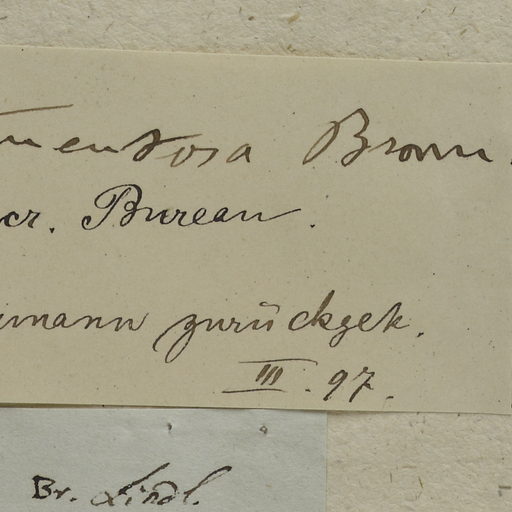 mentosa Brown.
cr. Bureau.
mann zurückgek.
III. 97.
Br. Lindl.